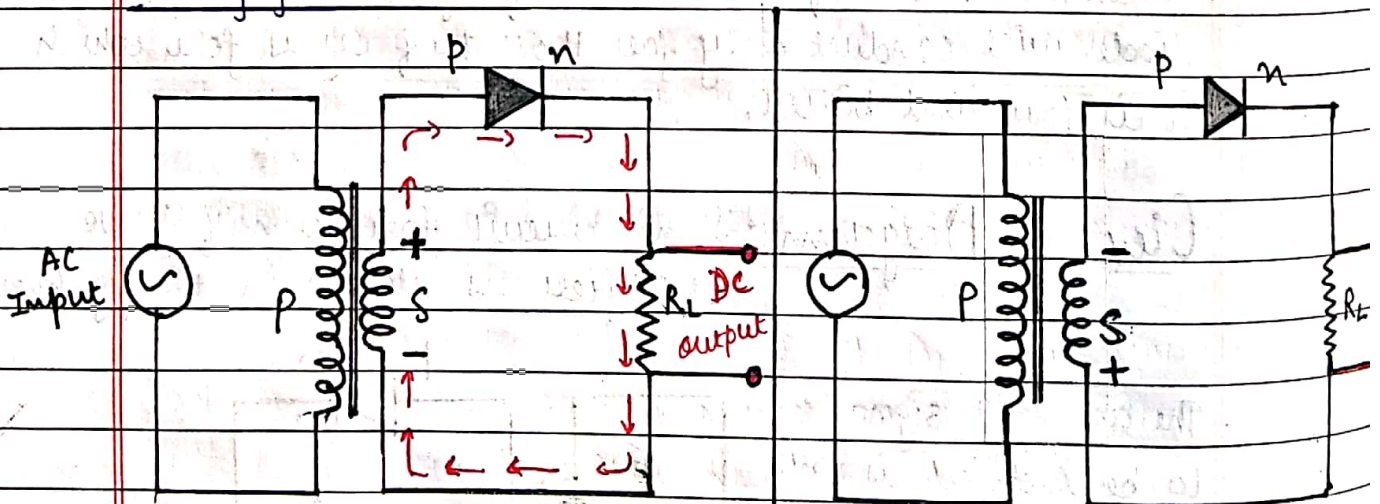 p n
AC
Input
P
+
S
-
RL
DC
output
p n
P
-
S
+
RL